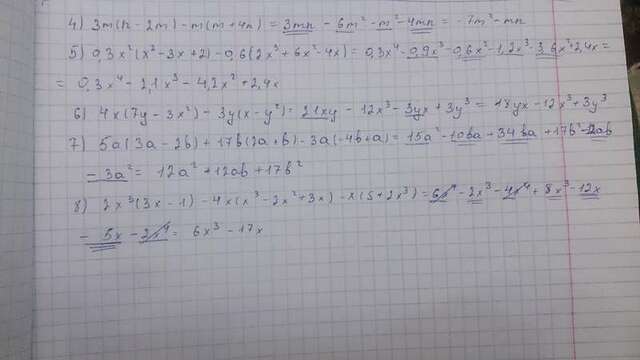 4) 3m(n - 2m) - m(m + 4n) = 3mn - 6m² - m² - 4mn = -7m² - mn
5) 0,3x²(x² - 3x + 2) - 0,6(2x³ + 6x² - 4x) = 0,3x⁴ - 0,9x³ - 0,6x² - 1,2x³ - 3,6x² + 2,4x =
= 0,3x⁴ - 2,1x³ - 4,2x² + 2,4x
6) 4x(7y - 3x²) - 3y(x - y²) = 21xy - 12x³ - 3yx + 3y³ = 18yx - 12x³ + 3y³
7) 5a(3a - 2b) + 17b(2a + b) - 3a(-4b + a) = 15a² - 10ba + 34ba + 17b² - 12ab
- 3a² = 12a² + 12ab + 17b²
8) 2x³(3x - 1) - 4x(x³ - 2x² + 3x) - x(5 + 2x³) = 6x⁴ - 2x³ - 4x⁴ + 8x³ - 12x
- 5x - 2x⁴ = 6x³ - 17x